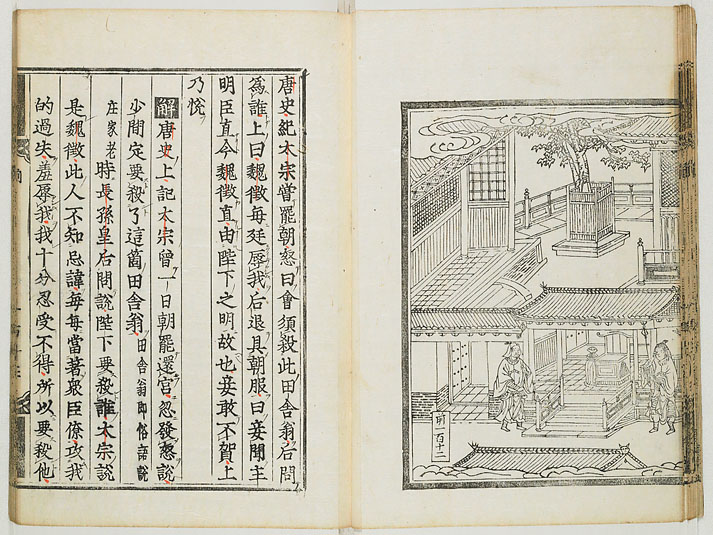 前一百十二
唐史紀太宗嘗罷朝怒曰會須殺此田舍翁后問
為誰上曰魏徵每廷辱我后退具朝服曰妾聞主
明臣直今魏徵直由陛下之明故也妾敢不賀上
乃悅
解唐史上記太宗曾一日朝罷還宮忽發怒說
少間定要殺了這箇田舍翁田舍翁即俗語說
庄家老時長孫皇后問說陛下要殺誰太宗說
是魏徵此人不知忌諱每每當著衆臣僚攻我
的過失羞辱我我十分忍受不得所以要殺他